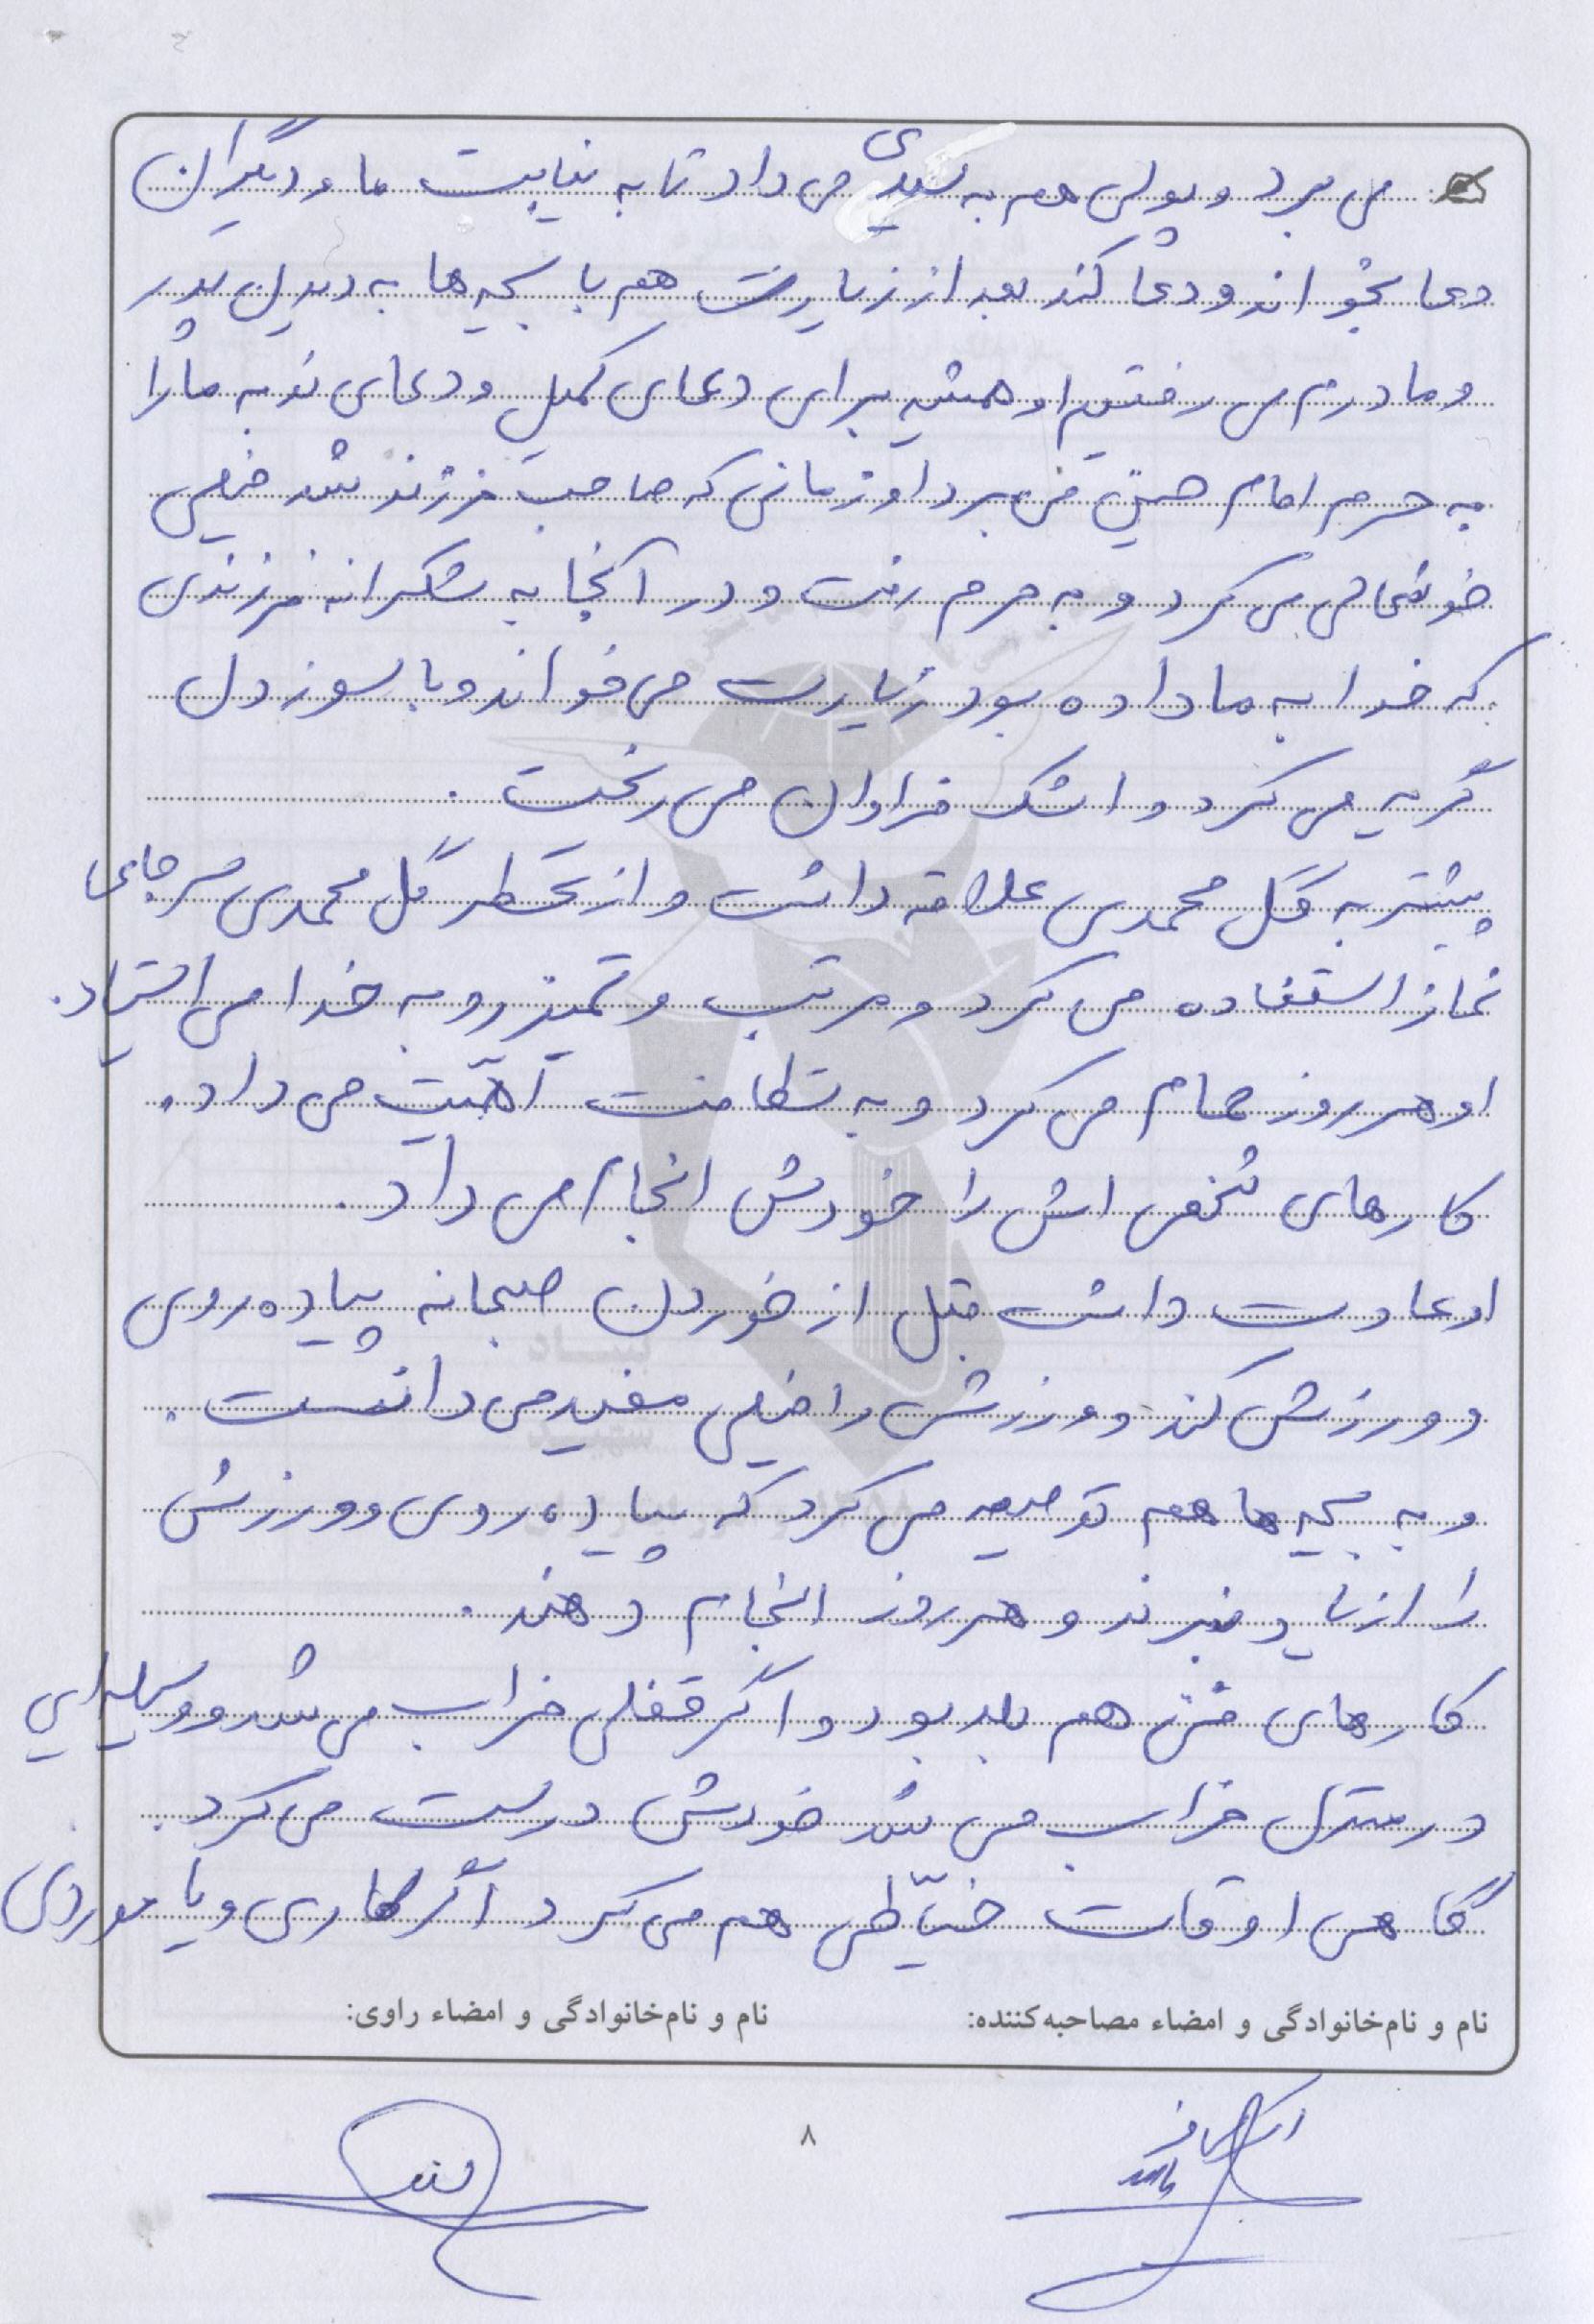 می برد و پولی هم به سیدی می داد تا به نیابت ما و دیگران
دعا بخواند و دعا کند بعد از زیارت هم با بچه ها به دیدن پدر
و مادرم می رفتیم او همیشه برای دعای کمیل و دعای ندبه ما را
به حرم امام خمینی می برد او زمانی که صاحب فرزند شد خیلی
خوشحالی می کرد و به حرم رفت و در آنجا به شکرانه فرزندی
که خدا به ما داده بود زیارت می خواند و با سوز دل
گریه می کرد و اشک فراوان می ریخت .
بیشتر به گل محمدی علاقه داشت و از عطر گل محمدی سر جای
نماز استفاده می کرد و مرتب و تمیز رو به خدا می ایستاد.
او هر روز حمام می کرد و به نظافت اهمّیت می داد.
کارهای شخصی اش را خودش انجام می داد.
او عادت داشت قبل از خوردن صبحانه پیاده روی
و ورزش کند و ورزش را خیلی مفید می دانست .
و به بچه ها هم توصیه می کرد که پیاده روی و ورزش
را از یاد نبرند و هر روز انجام دهند .
کارهای فنی هم بلد بود و اگر قفلی خراب می شد و وسیله ایی
در منزل خراب می شد خودش درست می کرد.
گاهی اوقات خیّاطی هم می کرد اگر کاری و یا موردی
نام و نام‌خانوادگی و امضاء مصاحبه‌کننده:
نام و نام‌خانوادگی و امضاء راوی:
۸